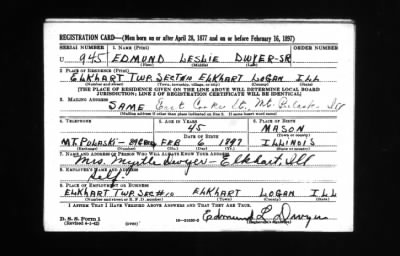 REGISTRATION CARD—(Men born on or after April 28, 1877 and on or before February 16, 1897)
SERIAL NUMBER 1. NAME (Print) ORDER NUMBER
U 945 EDMUND LESLIE DWYER-SR
(First) (Middle) (Last)
2. PLACE OF RESIDENCE (Print)
ELKHART TWP. SECT#10 ELKHART LOGAN ILL
(Number and street) (Town, township, village, or city) (County) (State)
[THE PLACE OF RESIDENCE GIVEN ON THE LINE ABOVE WILL DETERMINE LOCAL BOARD
JURISDICTION; LINE 2 OF REGISTRATION CERTIFICATE WILL BE IDENTICAL]
3. MAILING ADDRESS
SAME East Cooke St. Mt. Pulaski, Ill
[Mailing address if other than place indicated on line 2. If same insert word same]
4. TELEPHONE 5. AGE IN YEARS 6. PLACE OF BIRTH
45 MASON
DATE OF BIRTH (Town or county)
MT. PULASKI FEB 6 1897 ILLINOIS
(Exchange) (Number) (Mo.) (Day) (Yr.) (State or country)
7. NAME AND ADDRESS OF PERSON WHO WILL ALWAYS KNOW YOUR ADDRESS
Mrs. Myrtle Dwyer - Elkhart, Ill
8. EMPLOYER'S NAME AND ADDRESS
Self
9. PLACE OF EMPLOYMENT OR BUSINESS
ELKHART TWP. SEC#10 ELKHART LOGAN ILL
(Number and street or R. F. D. number) (Town) (County) (State)
I AFFIRM THAT I HAVE VERIFIED ABOVE ANSWERS AND THAT THEY ARE TRUE.
D. S. S. Form 1 Edmund L. Dwyer
(Revised 4-1-42) (over) (Registrant's signature)